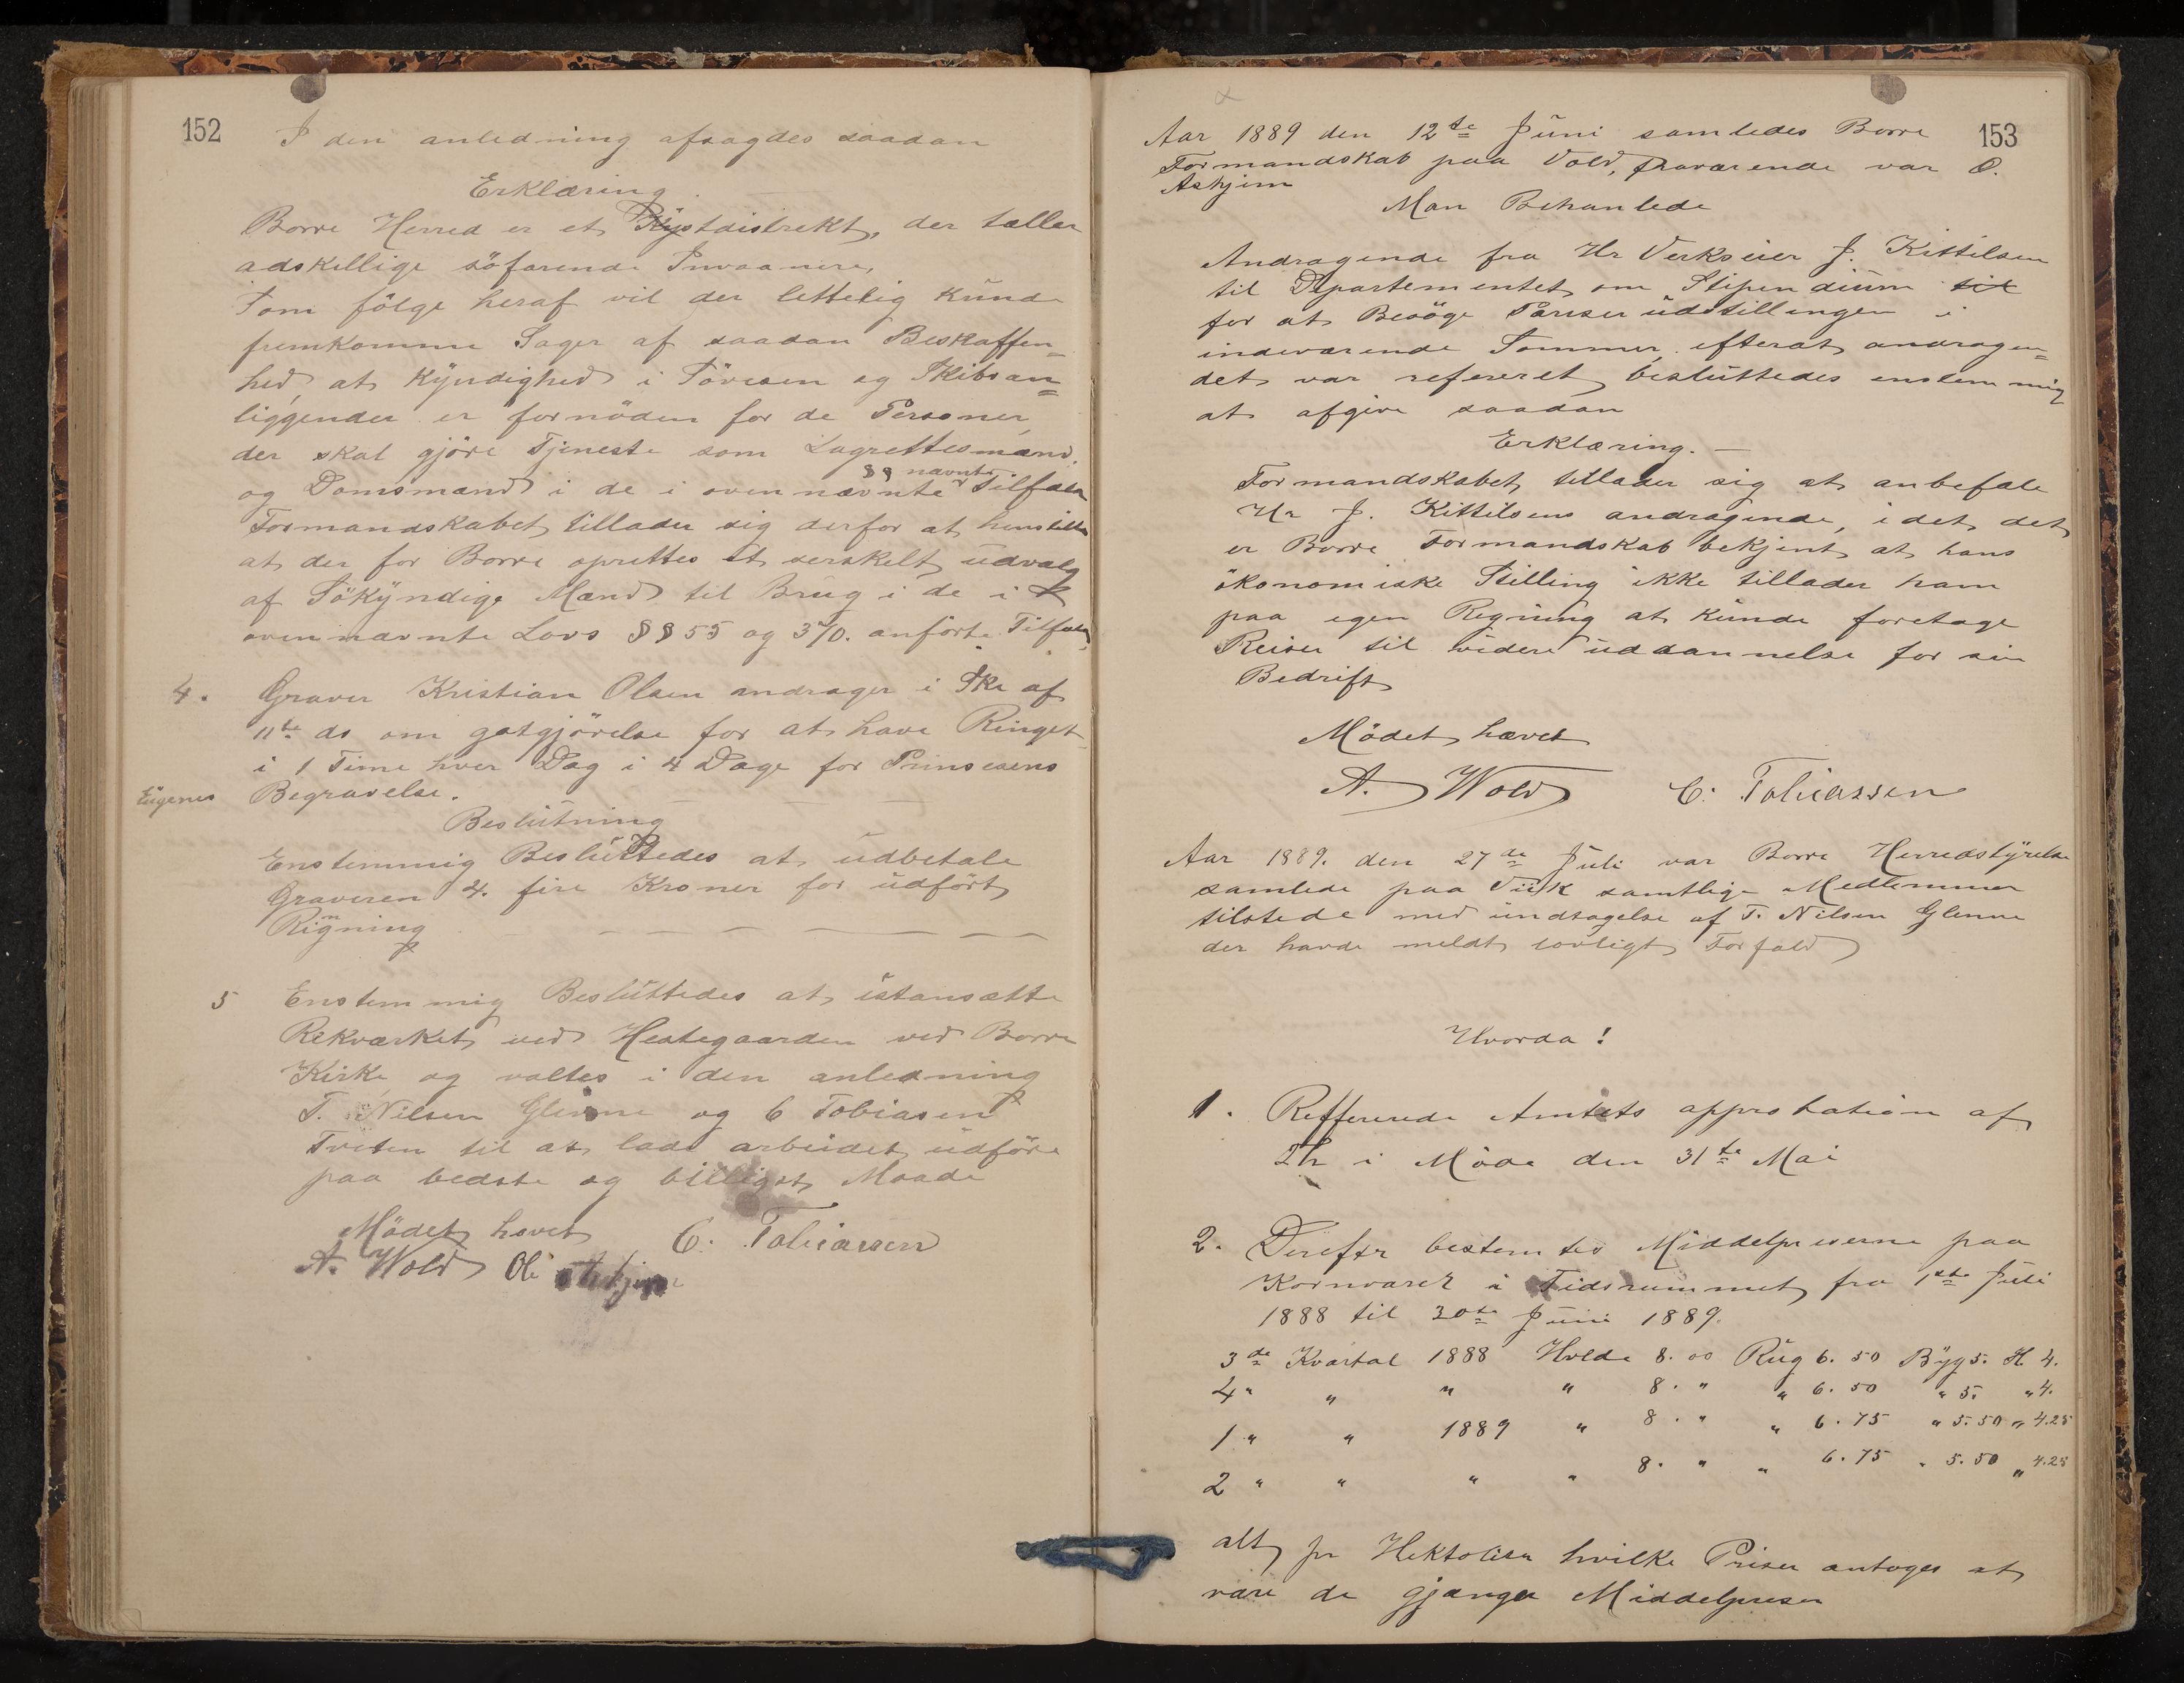 152
I den anledning afsagdes saadan
Erklæring
Borre Herred er et Kystdistrekt, der tæller
adskellige söfarende Invaanere,
Som fölge heraf vil der lettelig kunde
fremkomme Sager af saadan Beskaffen=
hed, at Kyndighed i Sövesen og Skibsan=
liggender er fornöden for de Personer,
der skal gjöre Tjeneste som Lagrettesmænd
og Domsmænd i de i ovennævnte §§ nævnte Tilfælde
Formandskabet tillader sig derfor at henstille
at der for Borre oprettes et serskelt udvalg
af Sökyndige Mænd til Brug i de i
ovennævnte Lovs §§ 55 og 370. anförte Tilfælde
4. Graver Kristian Olsen andrager i Skr af
11te ds om gotgjörelse for at have Ringet
i 1 Time hver Dag i 4 Dage for Prinsesens
Eugenes Begravelse.
Beslutning
Enstemmig Besluttedes at udbetale
Graveren 4. fire Kroner for udfört
Rigning
5 Enstemmig Besluttedes at istansætte
Rekværket ved Hestegaarden ved Borre
Kirke og valtes i den anledning
T. Nilsen Glenne og C Tobiasen
Tveten til at lade arbeidet udföre
paa bedste og billigst Maade
Mödet hævet C. Tobiassen
A. Wold Ole Askjem
153
Aar 1889 den 12te Juni samledes Borre
Formandskab paa Vold, fraværende var O.
Askjem
Man Behanlede
Andragende fra Hr Verkseier J. Kittilsen
til Departementet om Stipendium til
for at Besöge Pariserudstillingen i
indeværende Sommer, efterat andragen=
det var refereret besluttedes enstemmig
at afgive saadan
Erklæring. —
Formandskabet tillader sig at anbefale
Hr J. Kittilsens andragende, idet det
er Borre Formandskab bekjent at hans
ökonomiske Stilling ikke tillader ham
paa egen Regning at kunde foretage
Reiser til videre uddannelse for sin
Bedrift
Mödet hævet
A. Wold C. Tobiassen
Aar 1889. den 27de Juli var Borre Herredstyrelse
samlede paa Viik samtlige Medlemmer
tilstede med undtagelse af T. Nilsen Glenne
der havde meldt lovligt Forfald
Hvorda!
1. Reffererede Amtets approbation af
i Möde den 31te Mai
2. Derefter bestemtes Middelpriserne paa
Kornvarer i Tidsrummet fra 1ste Juli
1888 til 30te Juni 1889.
3de Kvartal 1888 Hvede 8. 00 Rug 6. 50 Byg 5. H 4.
4" " " " 8. " " 6. 50 " 5. " 4.
1" " 1889 " 8. " " 6. 75 " 5.50 " 4.25
2 " " " " 8. " " 6. 75 " 5.50 " 4.25
alt pr Hektoliter hvilke Priser antoges at
være de gjænge Middelpriser